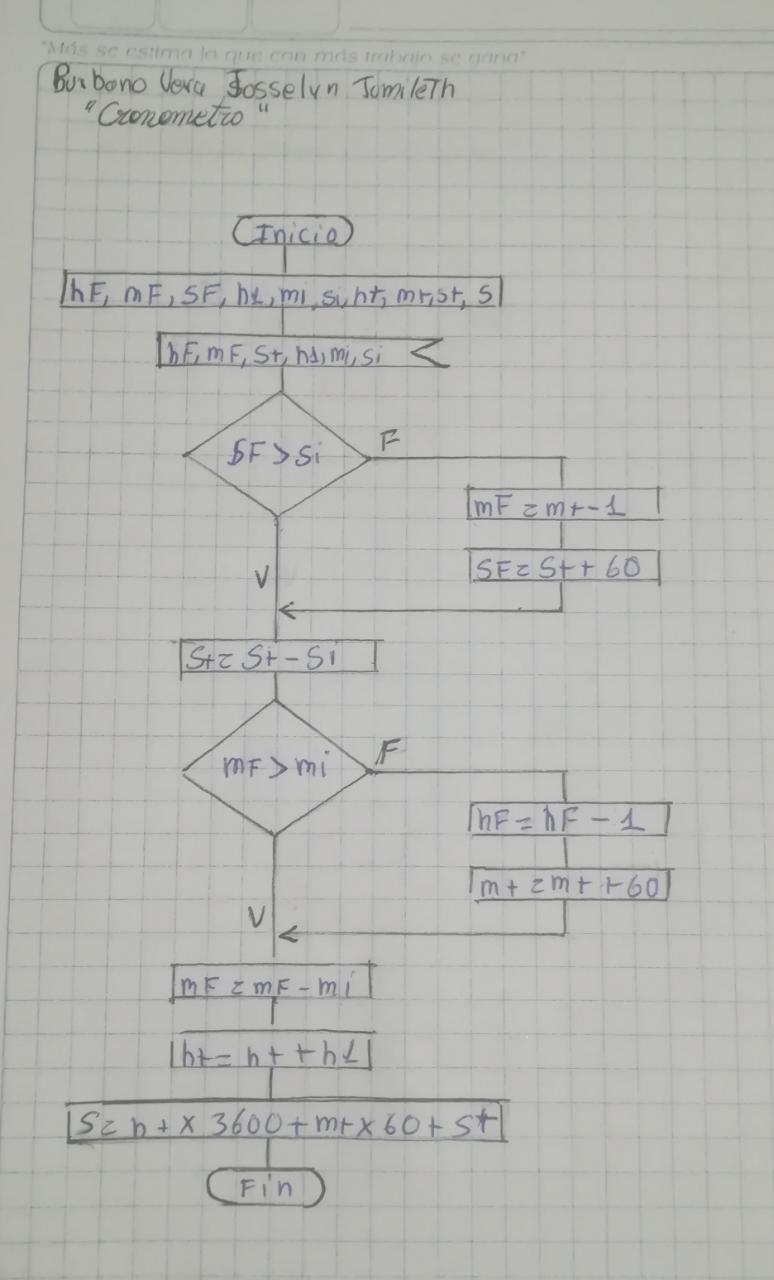 "Más se estima lo que con más trabajo se gana"
Burbano Vera Josselyn JamileTh
"Cronometro"
Inicio
hF, mF, SF, h1, mi, si, ht, mt, st, S
hF, mF, St, h1, mi, si
SF > Si
F
mF = mt - 1
SF = St + 60
V
St = St - Si
mF > mi
F
hF = hF - 1
mt = mt + 60
V
mF = mF - mi
ht = ht + h1
S = ht x 3600 + mt x 60 + St
Fin